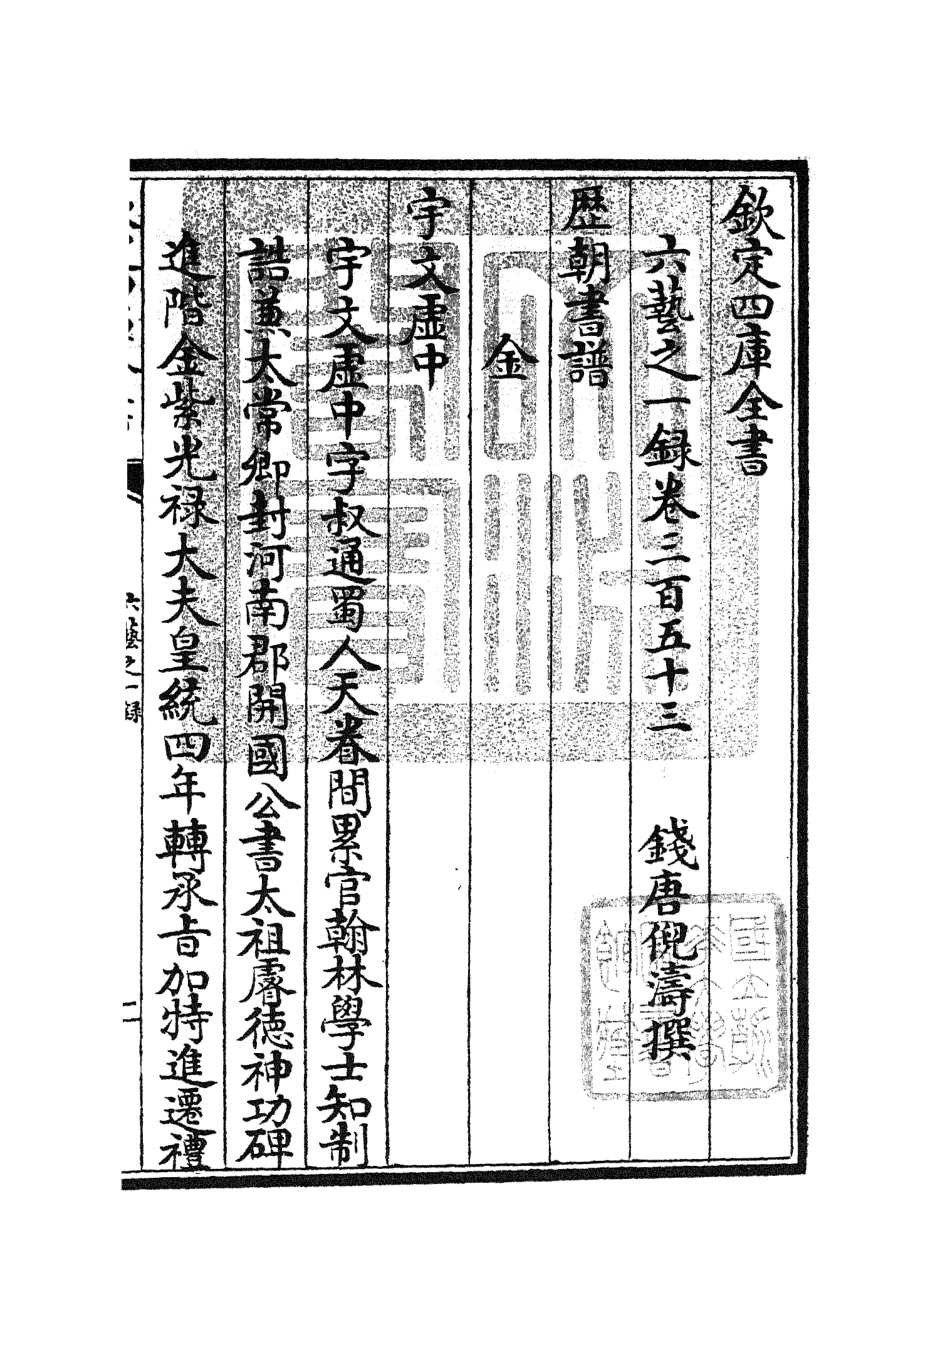 欽定四庫全書
六藝之一錄卷三百五十三　錢唐倪濤撰
歷朝書譜
金
宇文虛中
宇文虛中字叔通蜀人天眷間累官翰林學士知制
誥兼太常卿封河南郡開國公書太祖睿德神功碑
進階金紫光祿大夫皇統四年轉承旨加特進遷禮
六藝之一錄